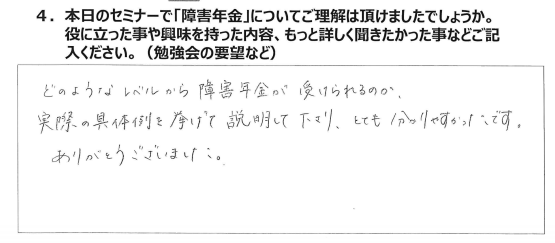 ４．本日のセミナーで「障害年金」についてご理解は頂けましたでしょうか。
役に立った事や興味を持った内容、もっと詳しく聞きたかった事などご記
入ください。（勉強会の要望など）
どのような レベルから 障害年金が 受けられるのか、
実際の具体例を挙げて 説明して下さり、とても 分かりやすかったです。
ありがとうございました。